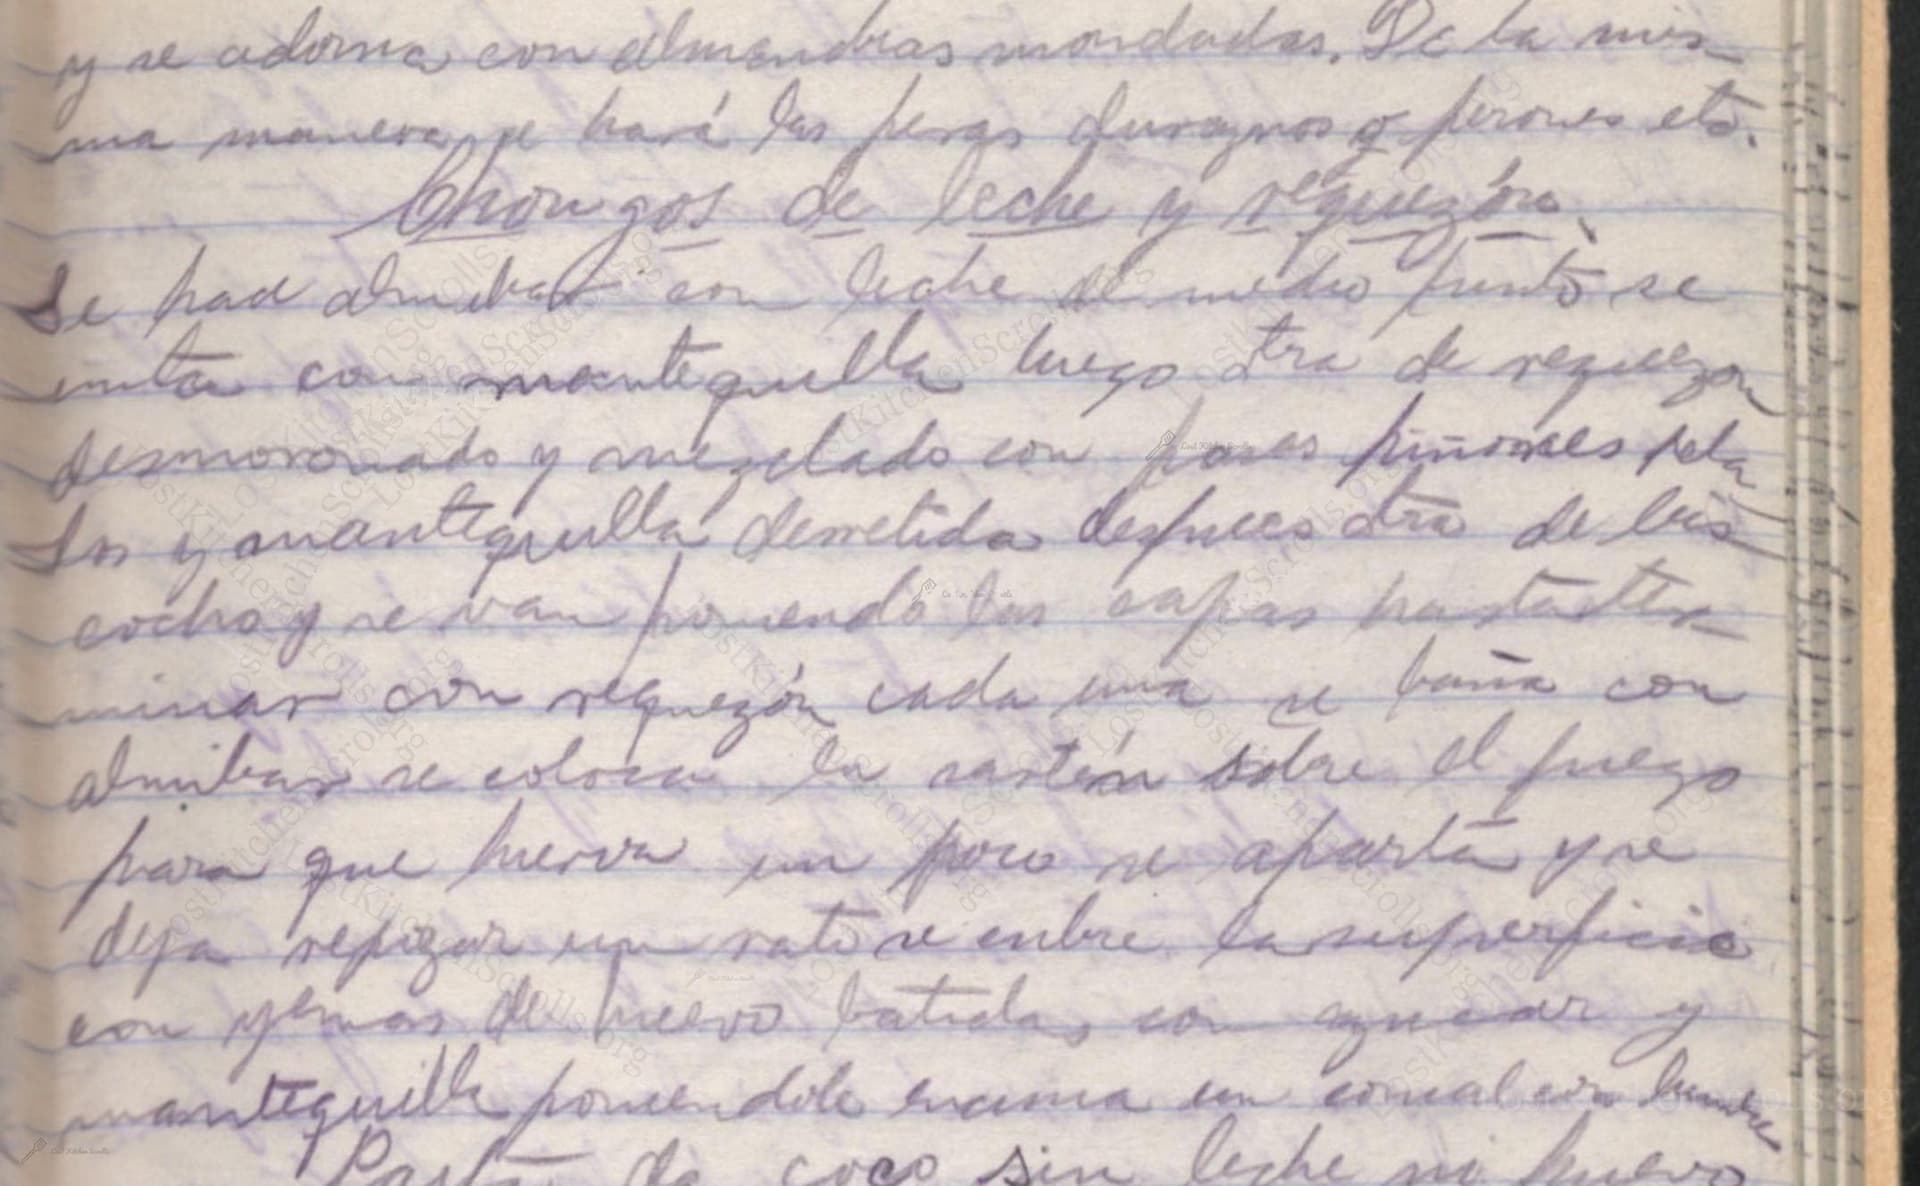 y se adorna con almendras mondadas. De la mis-
ma manera se hará las peras duraznos o perones etc.
Chongos de leche y requezón.
Se hace almibar con leche de medio punto se
unta con mantequilla luego otra de requezon
desmoronado y mezclado con pasas piñones pela
dos y mantequilla derretida despues otra de bis
cocho y se van poniendo las capas hasta ter-
minar con requezón cada una se baña con
almibar se coloca la sartén sobre el fuego
para que hierva un poco se aparta y se
deja repozar un rato se cubre la superficie
con yemas de huevo batidas con azucar y
mantequilla poniendole encima un comal con lumbre
Pasta de coco sin leche ni huevo